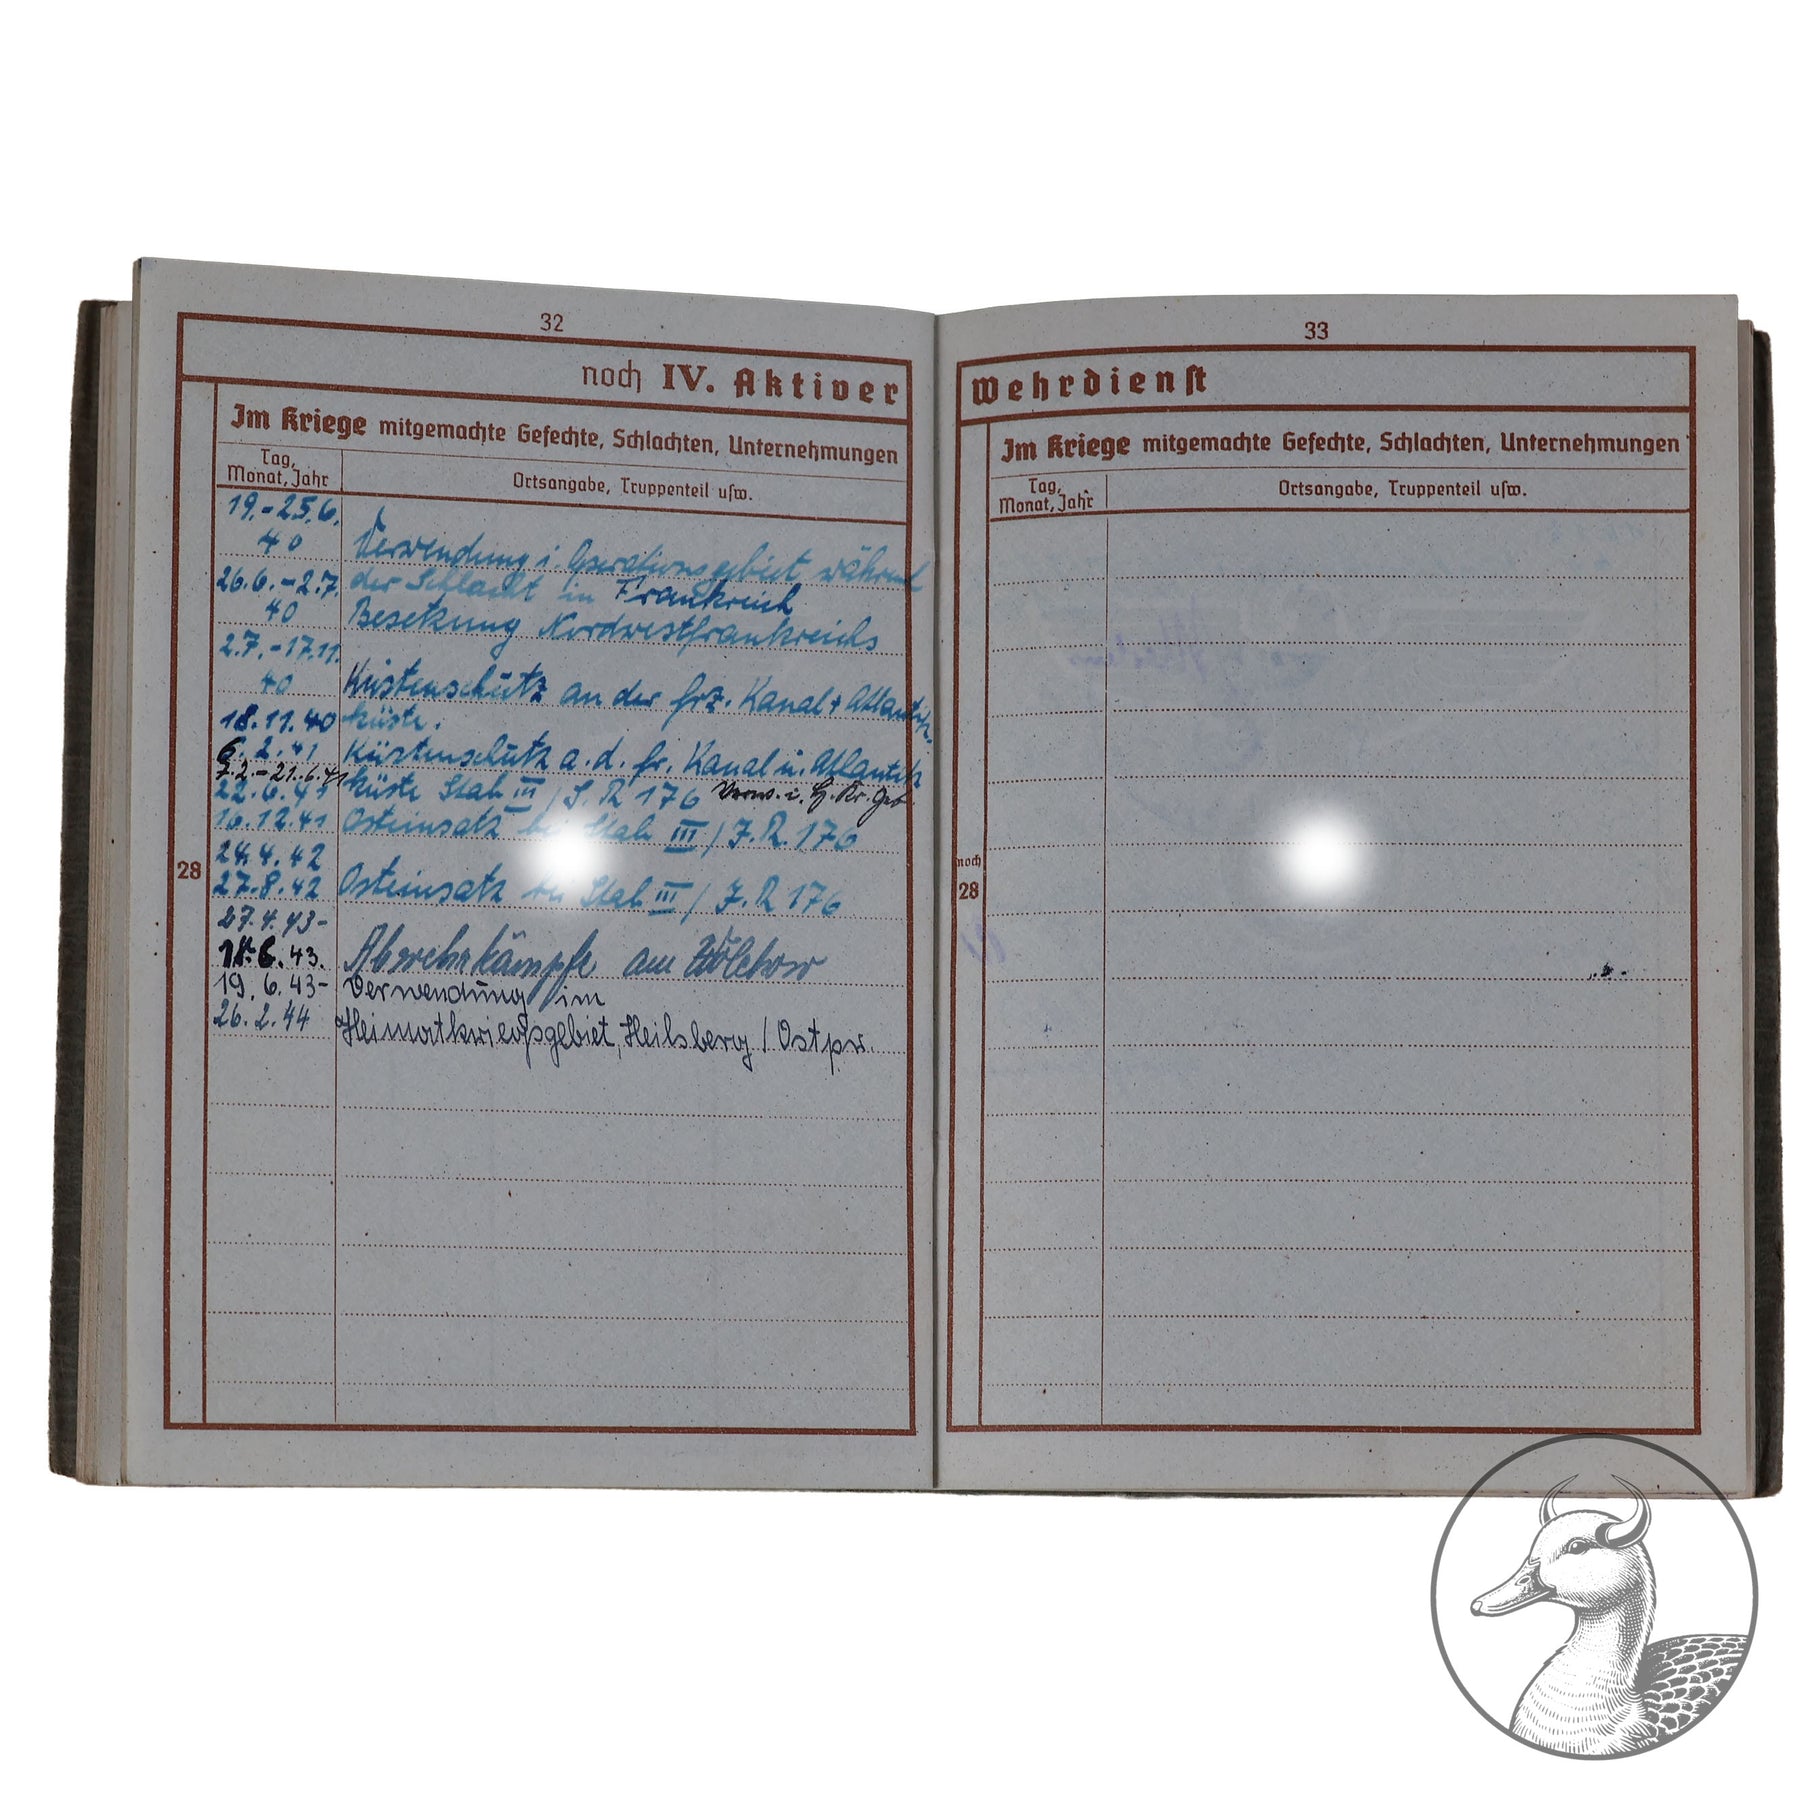 32
noch IV. Aktiver
Im Kriege mitgemachte Gefechte, Schlachten, Unternehmungen
Tag, Monat, Jahr
Ortsangabe, Truppenteil usw.
19.-25.6.
40 Verwendung i. Operationsgebiet während
26.6.-2.7. der Schlacht in Frankreich
40 Besetzung Nordwestfrankreichs
2.7.-17.11.
40 Küstenschutz an der frz. Kanal + Atlantik-
18.11.40 küste.
6.2.41 Küstenschutz a. d. fr. Kanal u. Atlantik
7.2.-21.6.41 küste Stab III / I. R. 176 Verw. i. H. Kr. Geb.
22.6.41
16.12.41 Osteinsatz bei Stab III / I. R. 176
24.4.42
27.8.42 Osteinsatz bei Stab III / I. R. 176
27.4.43-
18.6.43. Abwehrkämpfe am Wolchow
19.6.43- Verwendung im
26.2.44 Heimatkriegsgebiet, Heilsberg / Ostpr.
28
33
Wehrdienst
Im Kriege mitgemachte Gefechte, Schlachten, Unternehmungen
Tag, Monat, Jahr
Ortsangabe, Truppenteil usw.
noch
28